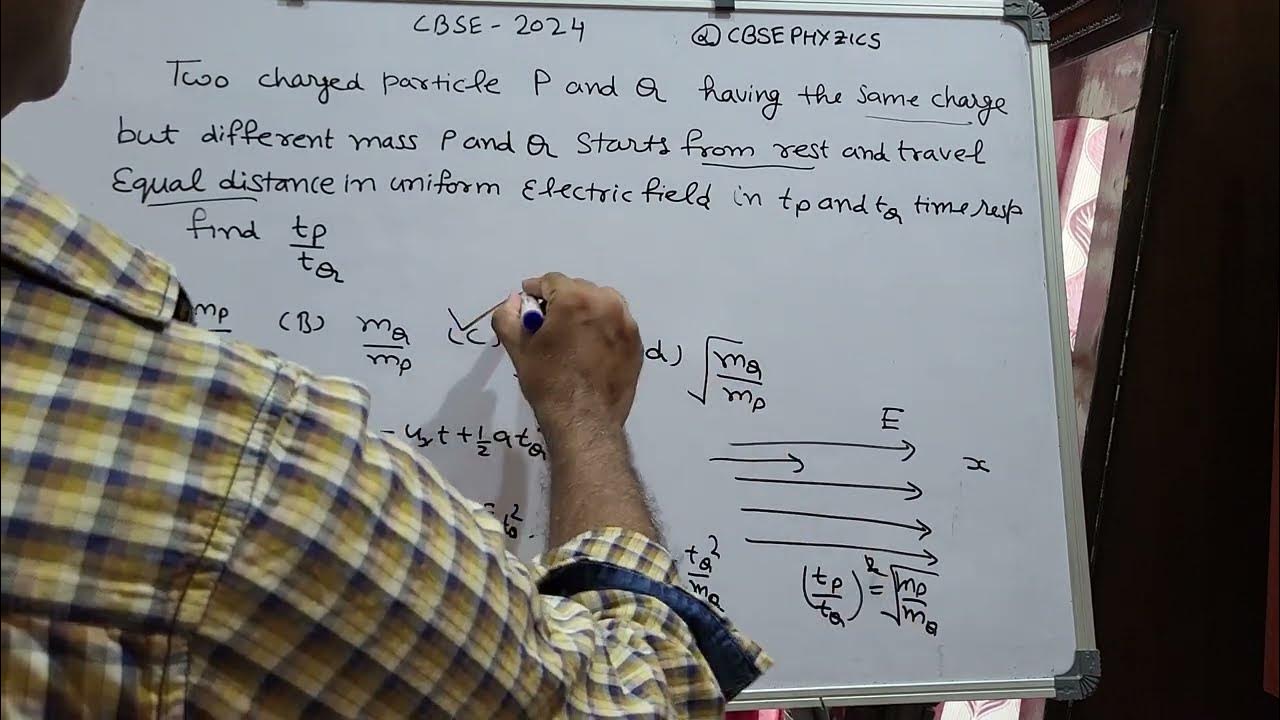 CBSE - 2024
@CBSEPHYZICS
Two charged particle P and Q having the same charge
but different mass P and Q Starts from rest and travel
Equal distance in uniform Electric field in tp and tQ time resp
find tp/tQ
mp (B) mQ/mp (C) d) √mQ/mp
E
- uxt + 1/2 a tQ
x
tQ²/mQ (tp/tQ) = √mp/mQ